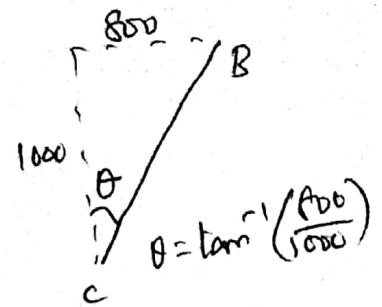 800
B
1000
θ
θ = tan⁻¹(800/1000)
C